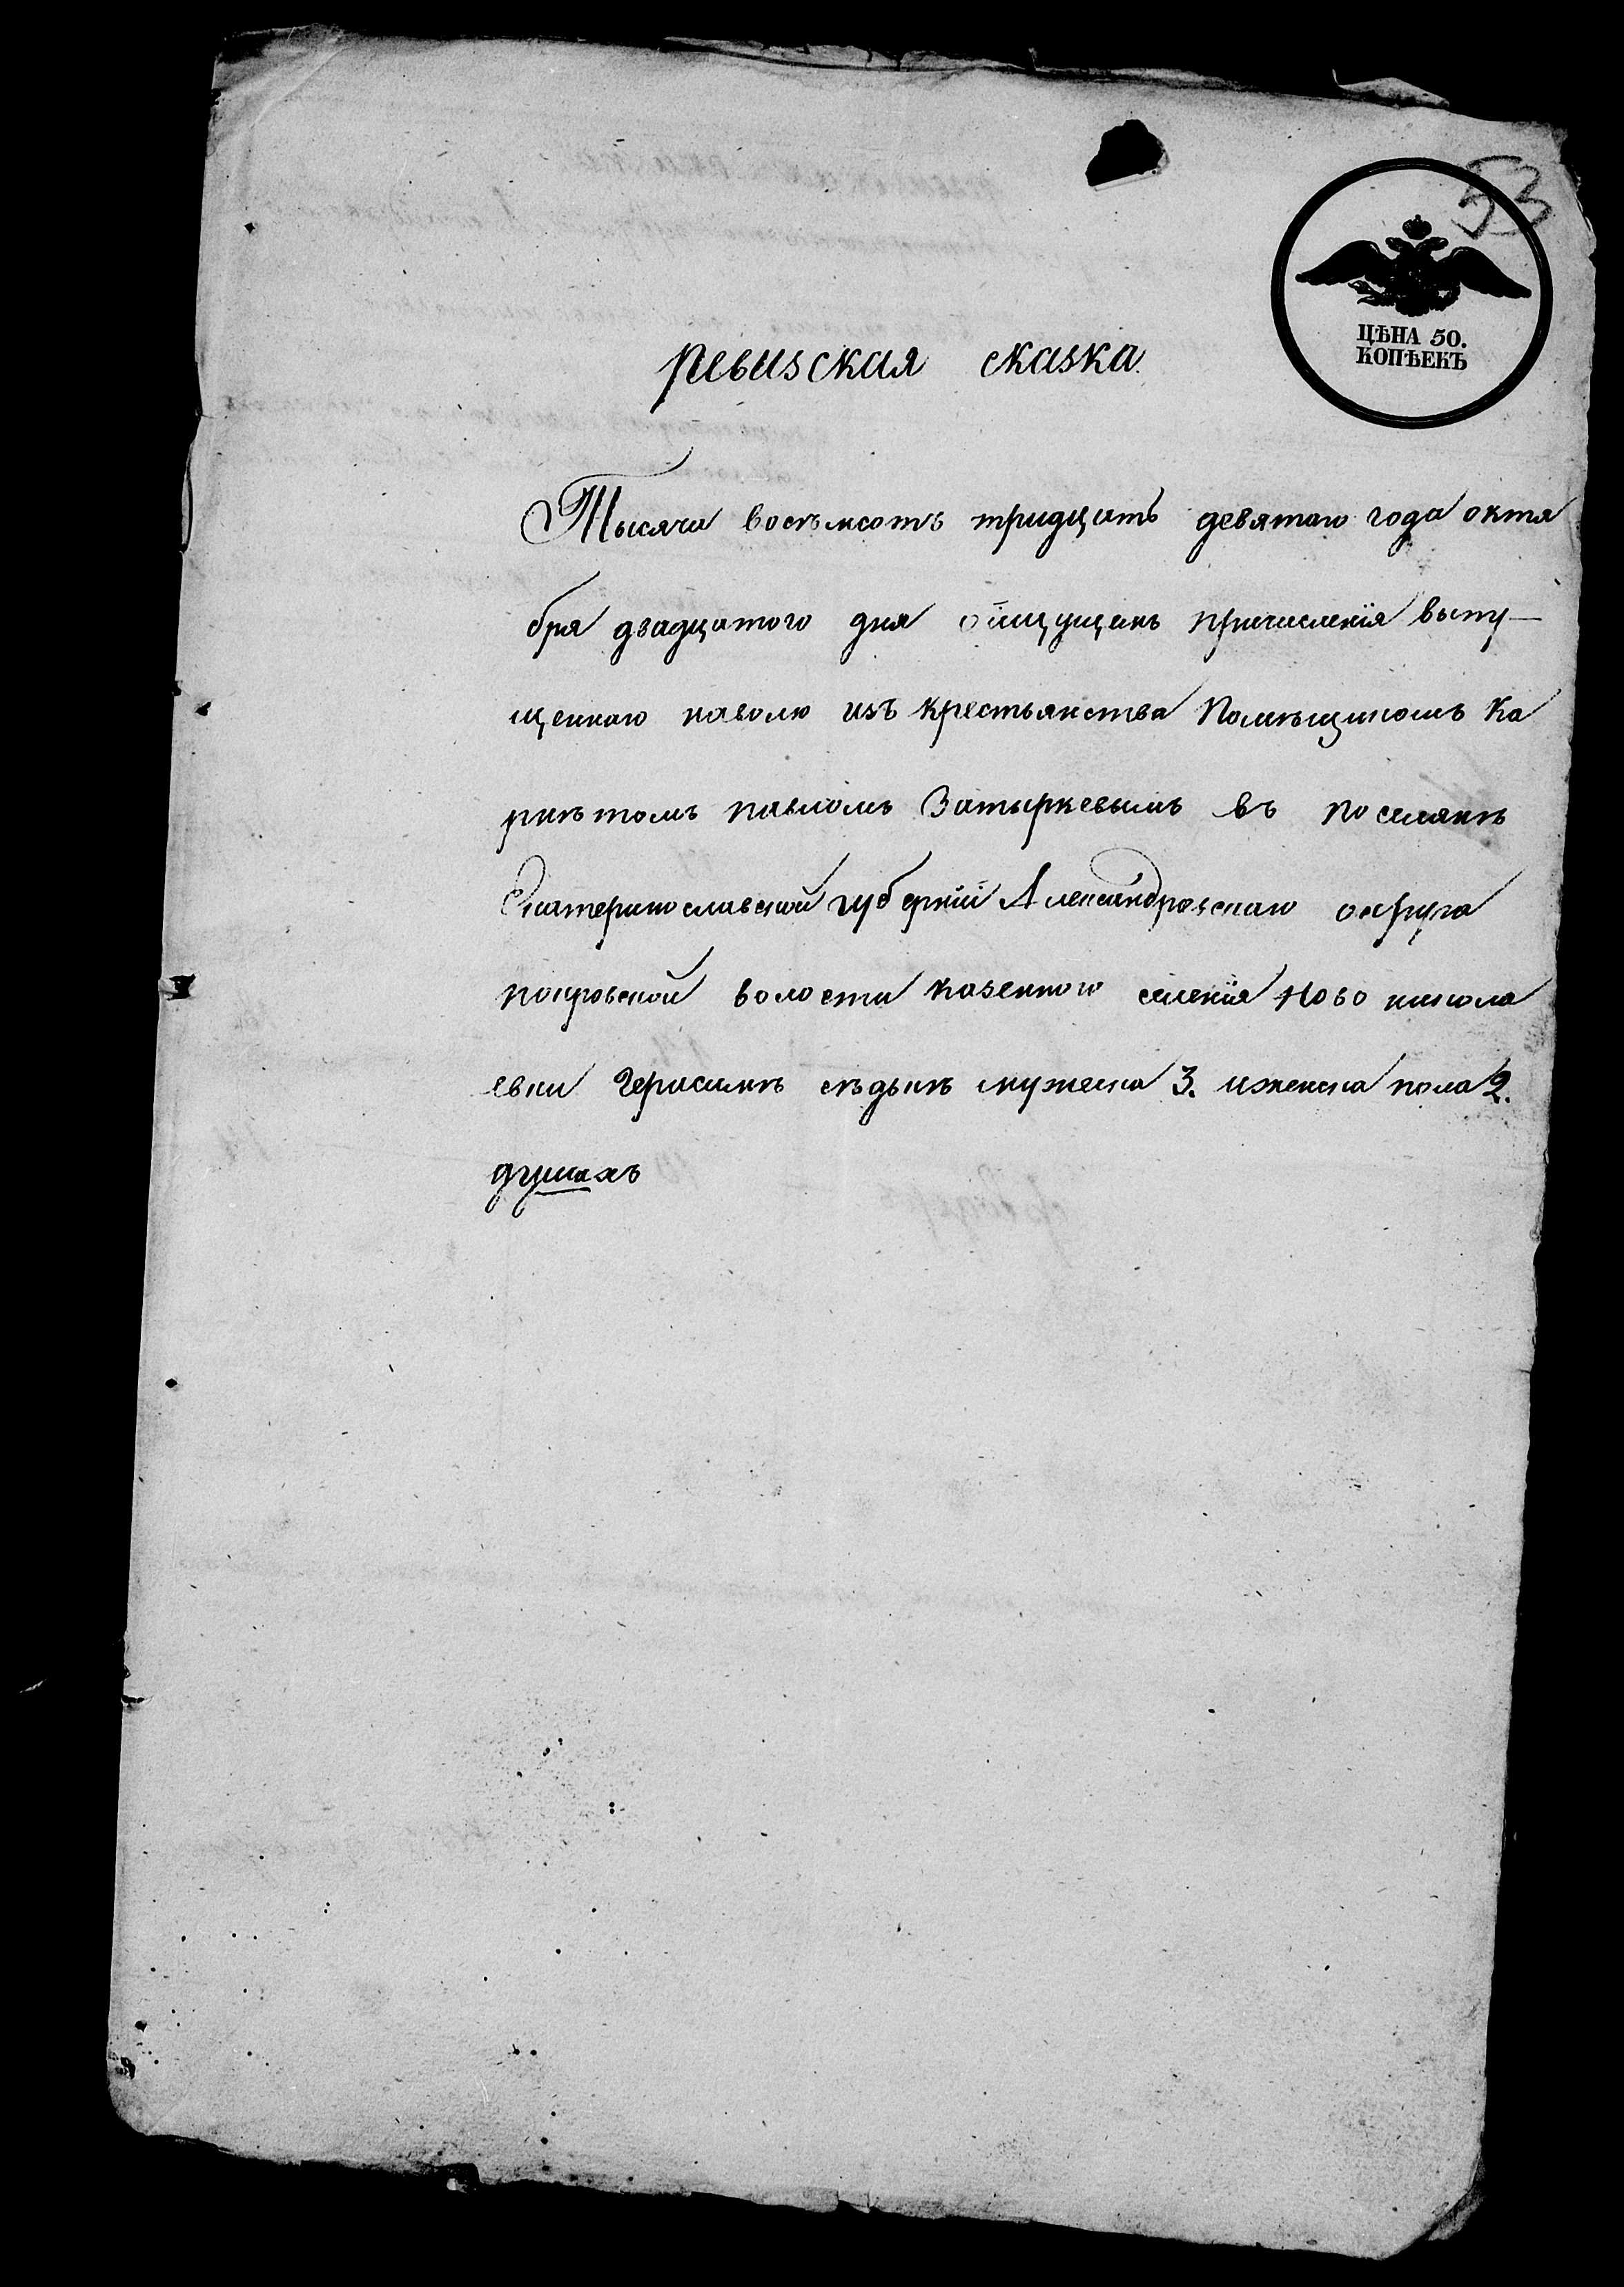 53
ЦѢНА 50.
КОПѢЕКЪ
ревизская сказка.
Тысяча восемьсотъ тридцать девятаго года октя
бря двадцатого дня о ищущемъ причисленія выпу-
щеннаго наволю изъ крестьянства Помѣщикомъ Ка
рнѣтомъ павломъ Затыркевымъ въ поселянѣ
Екатеринославской губерніи Александровскаго округа
покровской волости казенного селенія Ново никола
евки Герасимѣ сѣдымъ мужеска 3. иженска пола 2.
душахъ